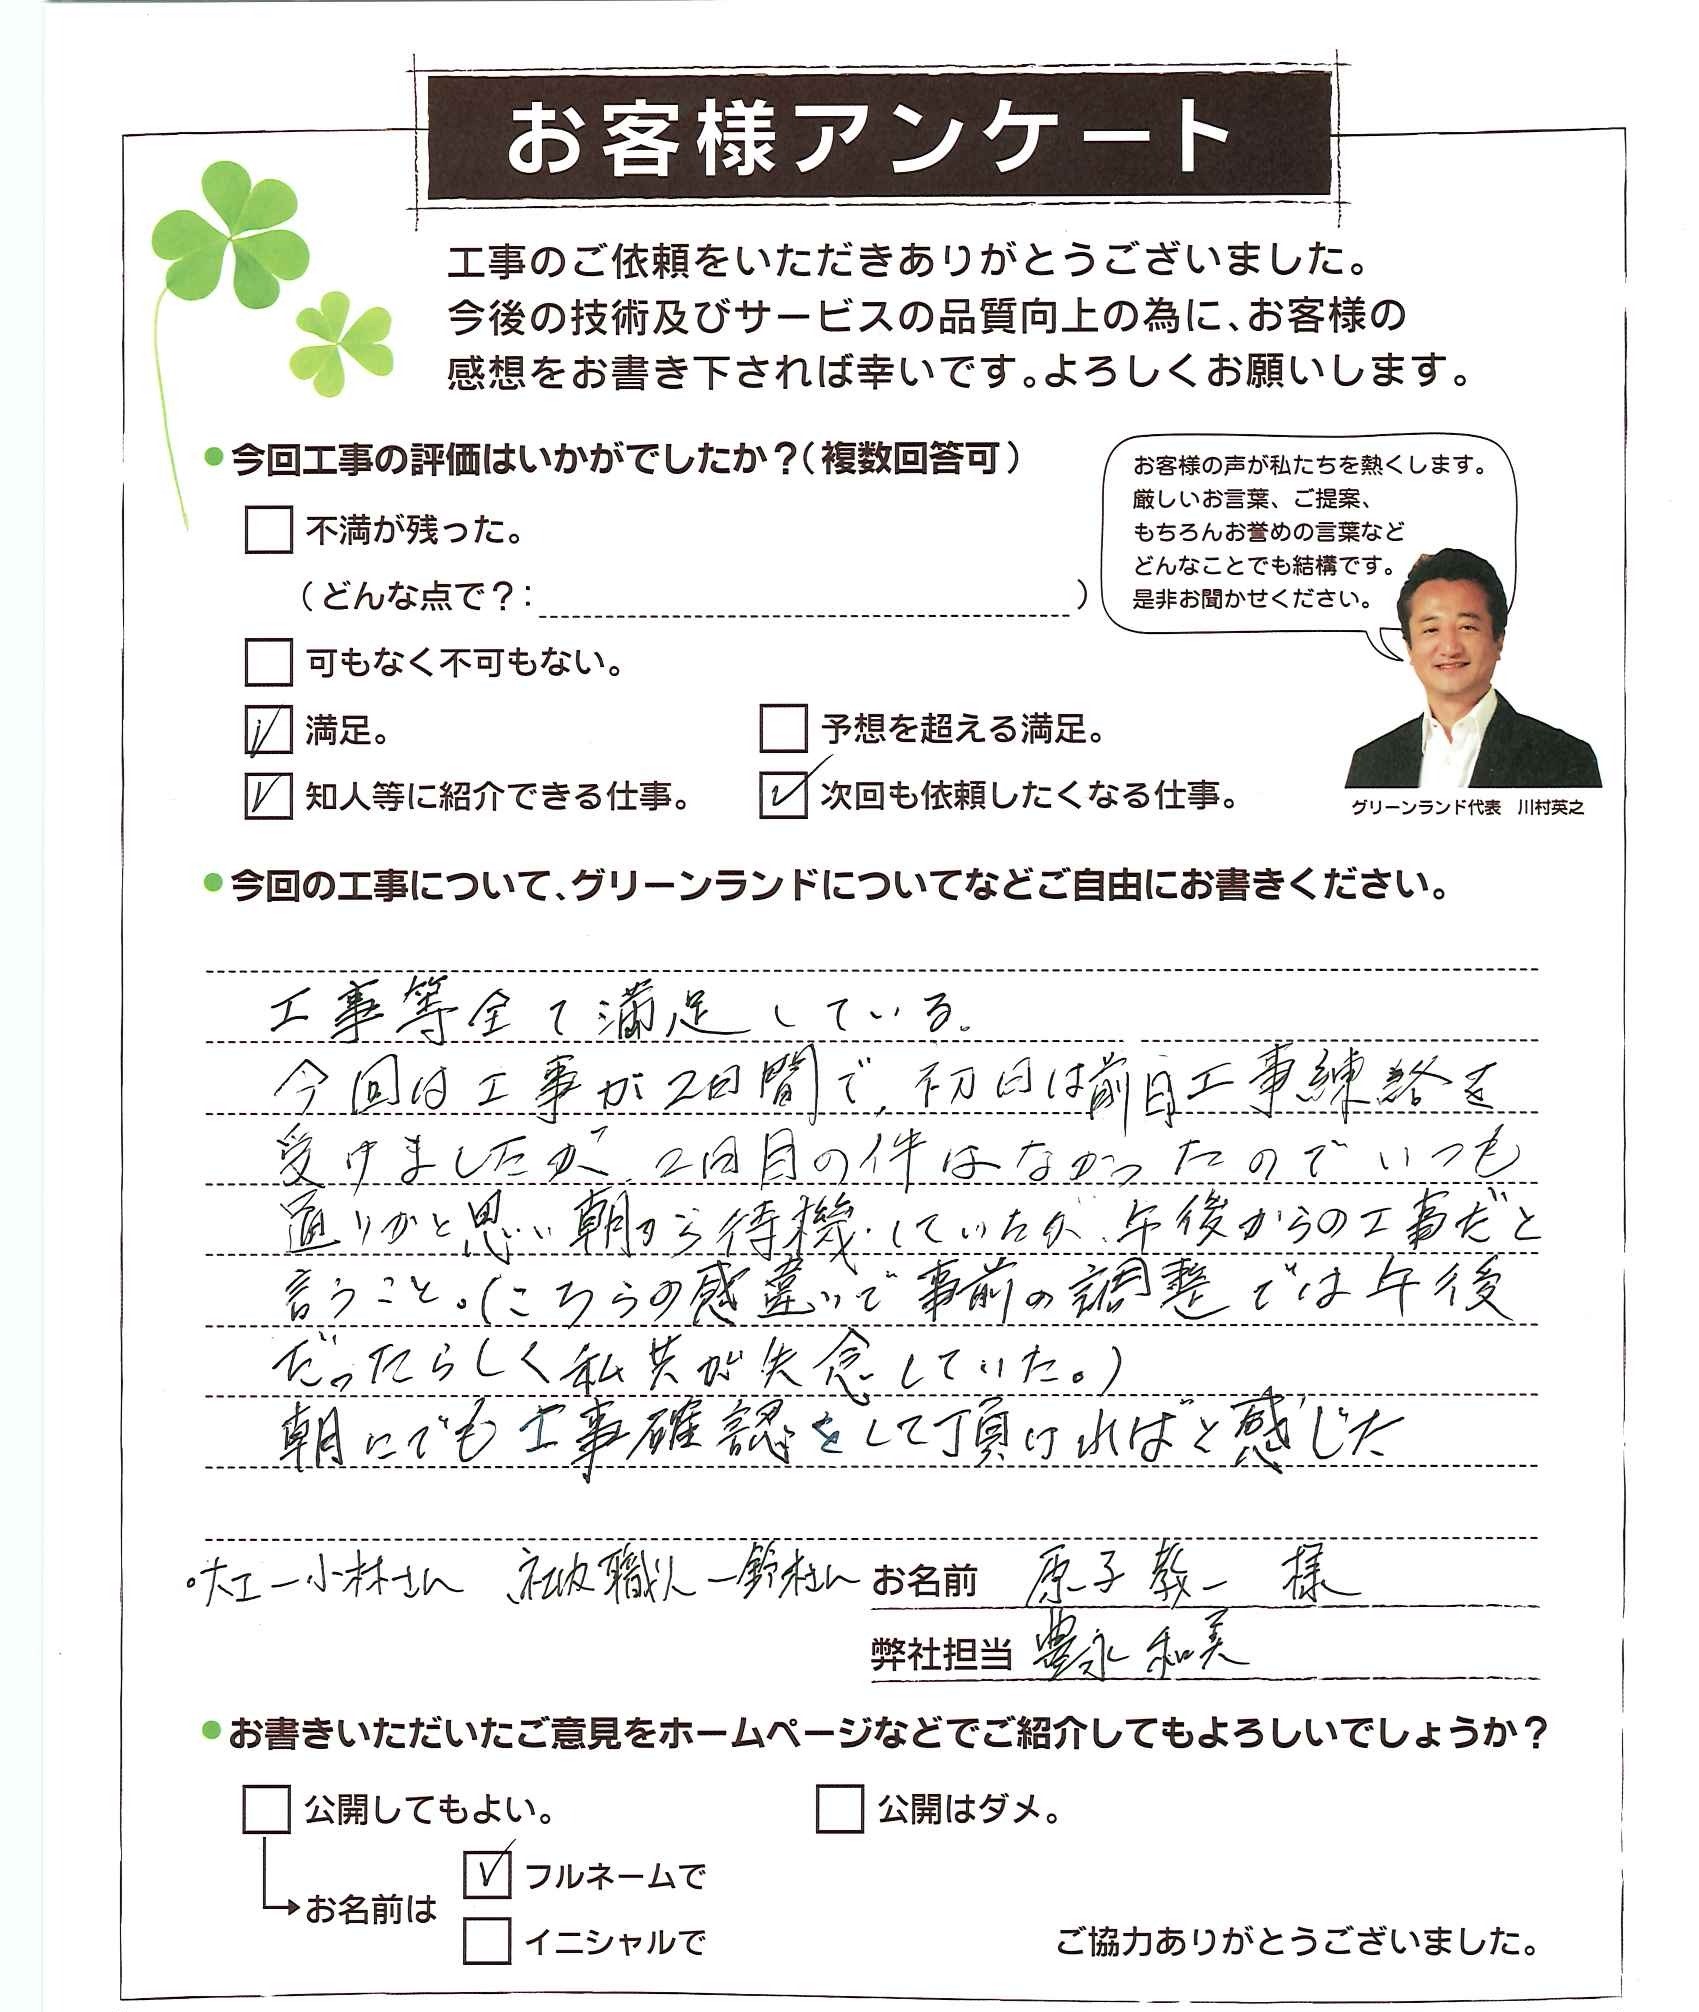 お客様アンケート
工事のご依頼をいただきありがとうございました。
今後の技術及びサービスの品質向上の為に、お客様の
感想をお書き下されば幸いです。よろしくお願いします。
●今回工事の評価はいかがでしたか？（複数回答可）
不満が残った。
（どんな点で？：　）
可もなく不可もない。
満足。
予想を超える満足。
知人等に紹介できる仕事。
次回も依頼したくなる仕事。
お客様の声が私たちを熱くします。
厳しいお言葉、ご提案、
もちろんお誉めの言葉など
どんなことでも結構です。
是非お聞かせください。
グリーンランド代表　川村英之
●今回の工事について、グリーンランドについてなどご自由にお書きください。
工事等全て満足している。
今回は工事が2日間で、初日は前日工事練絡を
受けましたが、2回目の件はなかったのでいつも
通りかと思い朝から待機していたが、午後からの工事だと
言うこと。(こちらの感違いで事前の調整では午後
だったらしく私共が失念していた。)
朝にでも工事確認をして頂ければと感じた
・大工ー小林さん　社内職人ー鈴木さん
お名前　原子教一　様
弊社担当　豊永和美
●お書きいただいたご意見をホームページなどでご紹介してもよろしいでしょうか？
公開してもよい。
公開はダメ。
お名前は
フルネームで
イニシャルで
ご協力ありがとうございました。